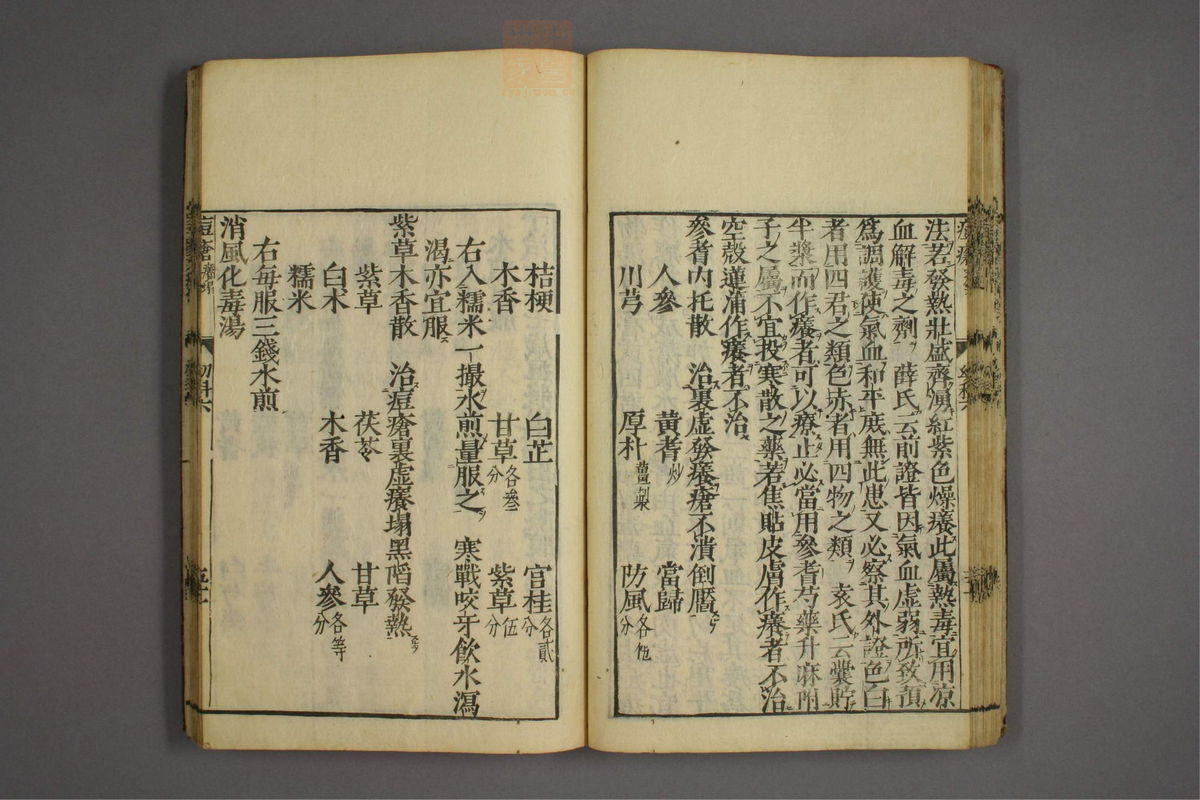 法若發熱壯盛齊湧紅紫色燥癢此屬熱毒宜用凉
血解毒之劑 薛氏云前證皆因氣血虛弱所致預
爲調護使氣血和平庶無此患又必察其外證色白
者用四君之類色赤者用四物之類 袁氏云囊貯
半漿而作癢者可以療止必當用參耆芍藥升麻附
子之屬不宜投寒散之藥若焦貼皮膚作癢者不治
空殼蓮蒲作癢者不治
參耆内托散 治裏虛發癢瘡不潰倒靨
人參 黃耆炒 當歸
川芎 厚朴薑製 防風各伍分
桔梗 白芷 官桂各貳分
木香 甘草各叁分 紫草伍分
右入糯米一撮水煎量服之 寒戰咬牙飲水瀉
渴亦宜服
紫草木香散 治痘瘡裏虛癢塌黑陷發熱
紫草 茯苓 甘草
白朮 木香 人參各等分
糯米
右每服三錢水煎
消風化毒湯
痘瘡癢 幼科六